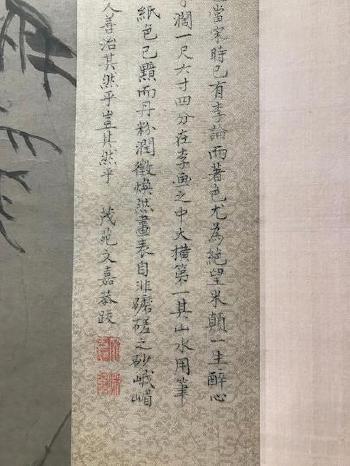 當宋時已有李論而著色尤為絶望米顛一生醉心
濶一尺六寸四分在李画之中大橫第一其山水用筆
紙色已黯而丹粉潤徵煥然畫表自非
之砂峨嵋
人善治其然乎豈其然乎 茂苑文嘉恭跋